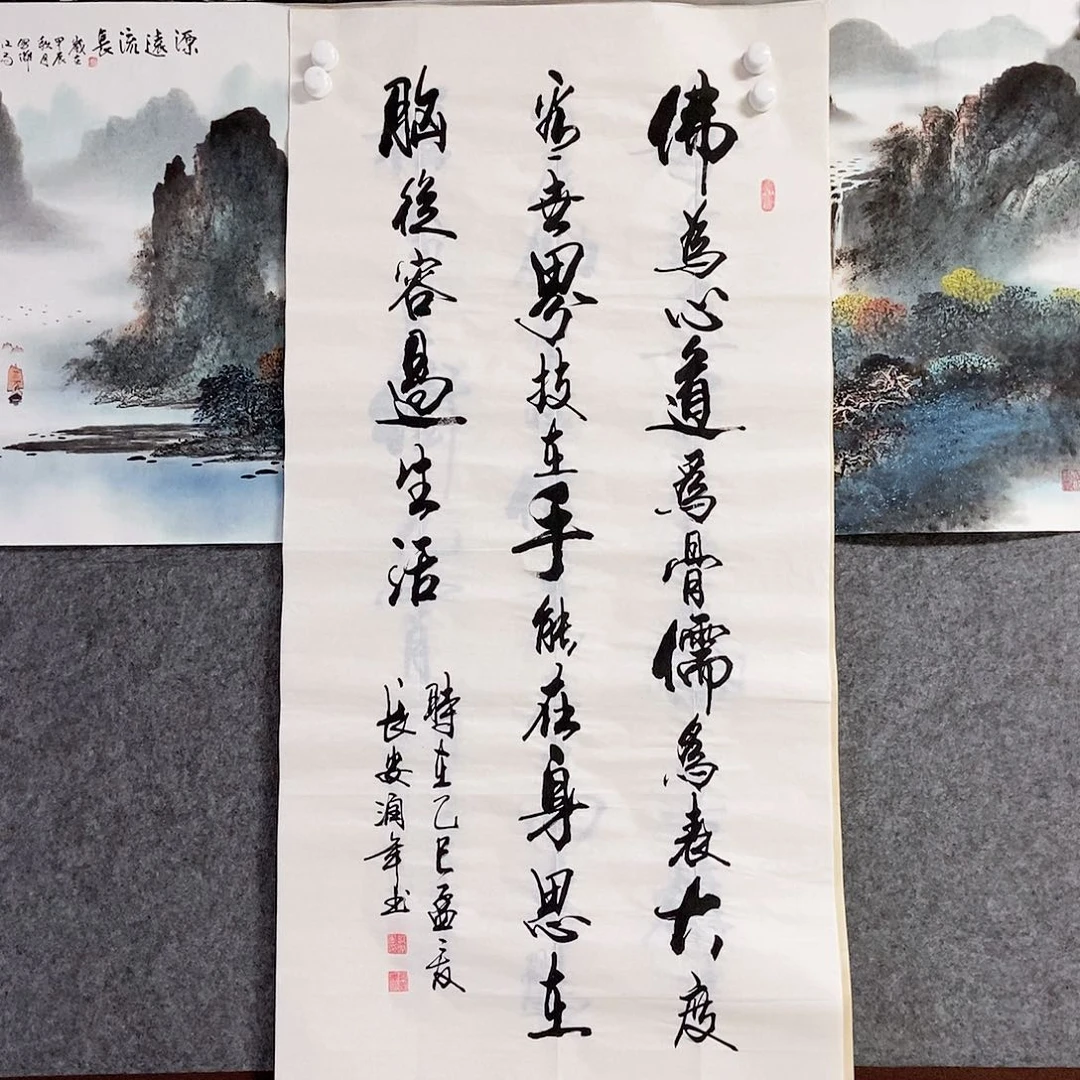 佛為心道為骨儒為表大度
看世界技在手能在身思在
腦從容過生活
時在乙巳孟夏
長安潤年书
源遠流長
歲在
甲辰
秋月